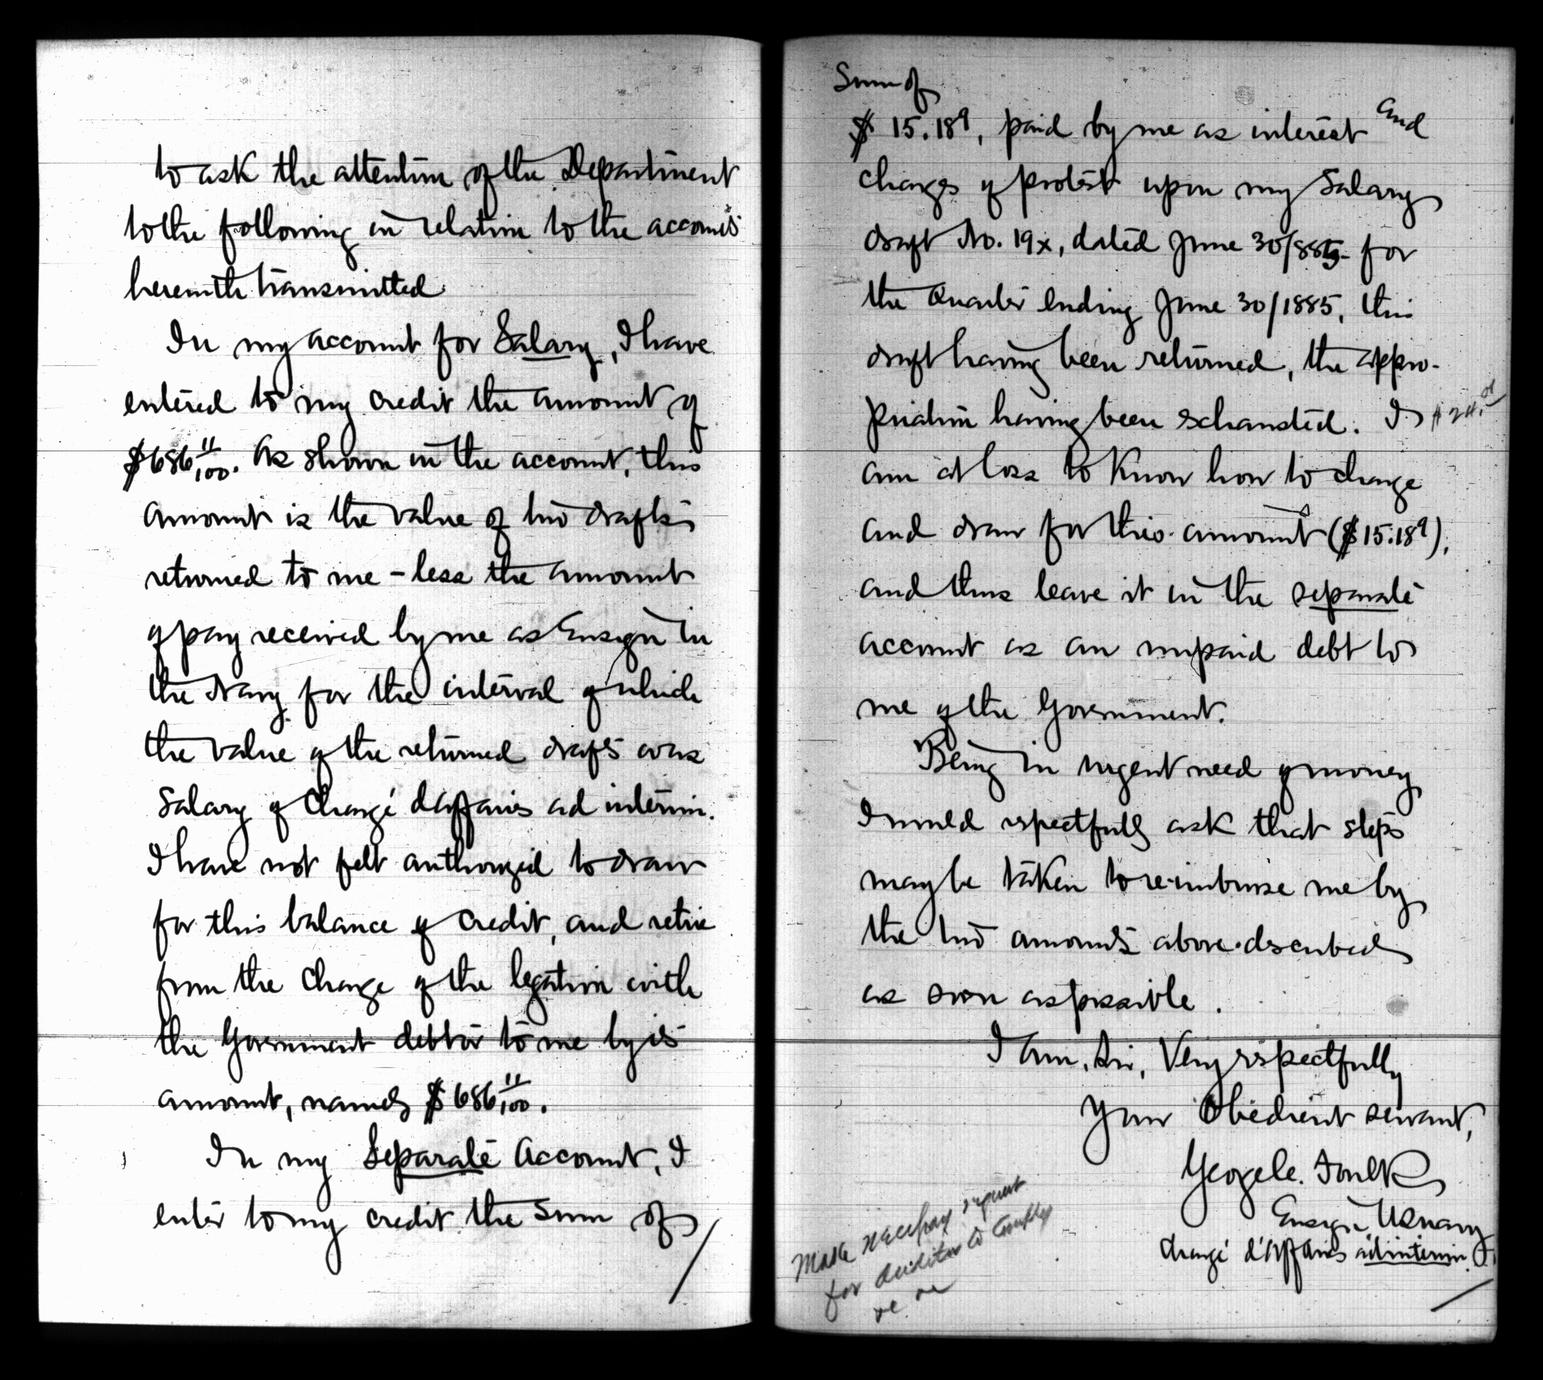 to ask the attention of the Department
to the following in relation to the accounts
herewith transmitted.
In my account for Salary, I have
entered to my credit the amount of
$686 11/100. As shown in the account, this
amount is the value of two drafts
returned to me - less the amount
of pay received by me as Ensign in
the Navy for the interval of which
the value of the returned drafts was
Salary of Chargé d'affaires ad interim.
I have not felt authorized to draw
for this balance of credit, and retire
from the charge of the legation with
the Government debtor to me by its
amount, namely $686 11/100.
In my Separate Account, I
enter to my credit the sum of
Sum of
$15.18⁹, paid by me as interest and
charges of protest upon my Salary
draft No. 19x, dated June 30/885 for
the Quarter ending June 30/1885, this
draft having been returned, the appro-
priation having been exhausted. I
am at loss to know how to charge
and draw for this amount ($15.18⁹),
and thus leave it in the separate
account as an unpaid debt to
me of the Government.
Being in urgent need of money
I would respectfully ask that steps
may be taken to re-imburse me by
the two amounts above-described
as soon as possible.
I am, Sir, Very respectfully
Your Obedient servant,
George C. Foulk
Ensign U.S. Navy
Chargé d'Affaires ad interim.
Make necessary request
for Auditor to Comply